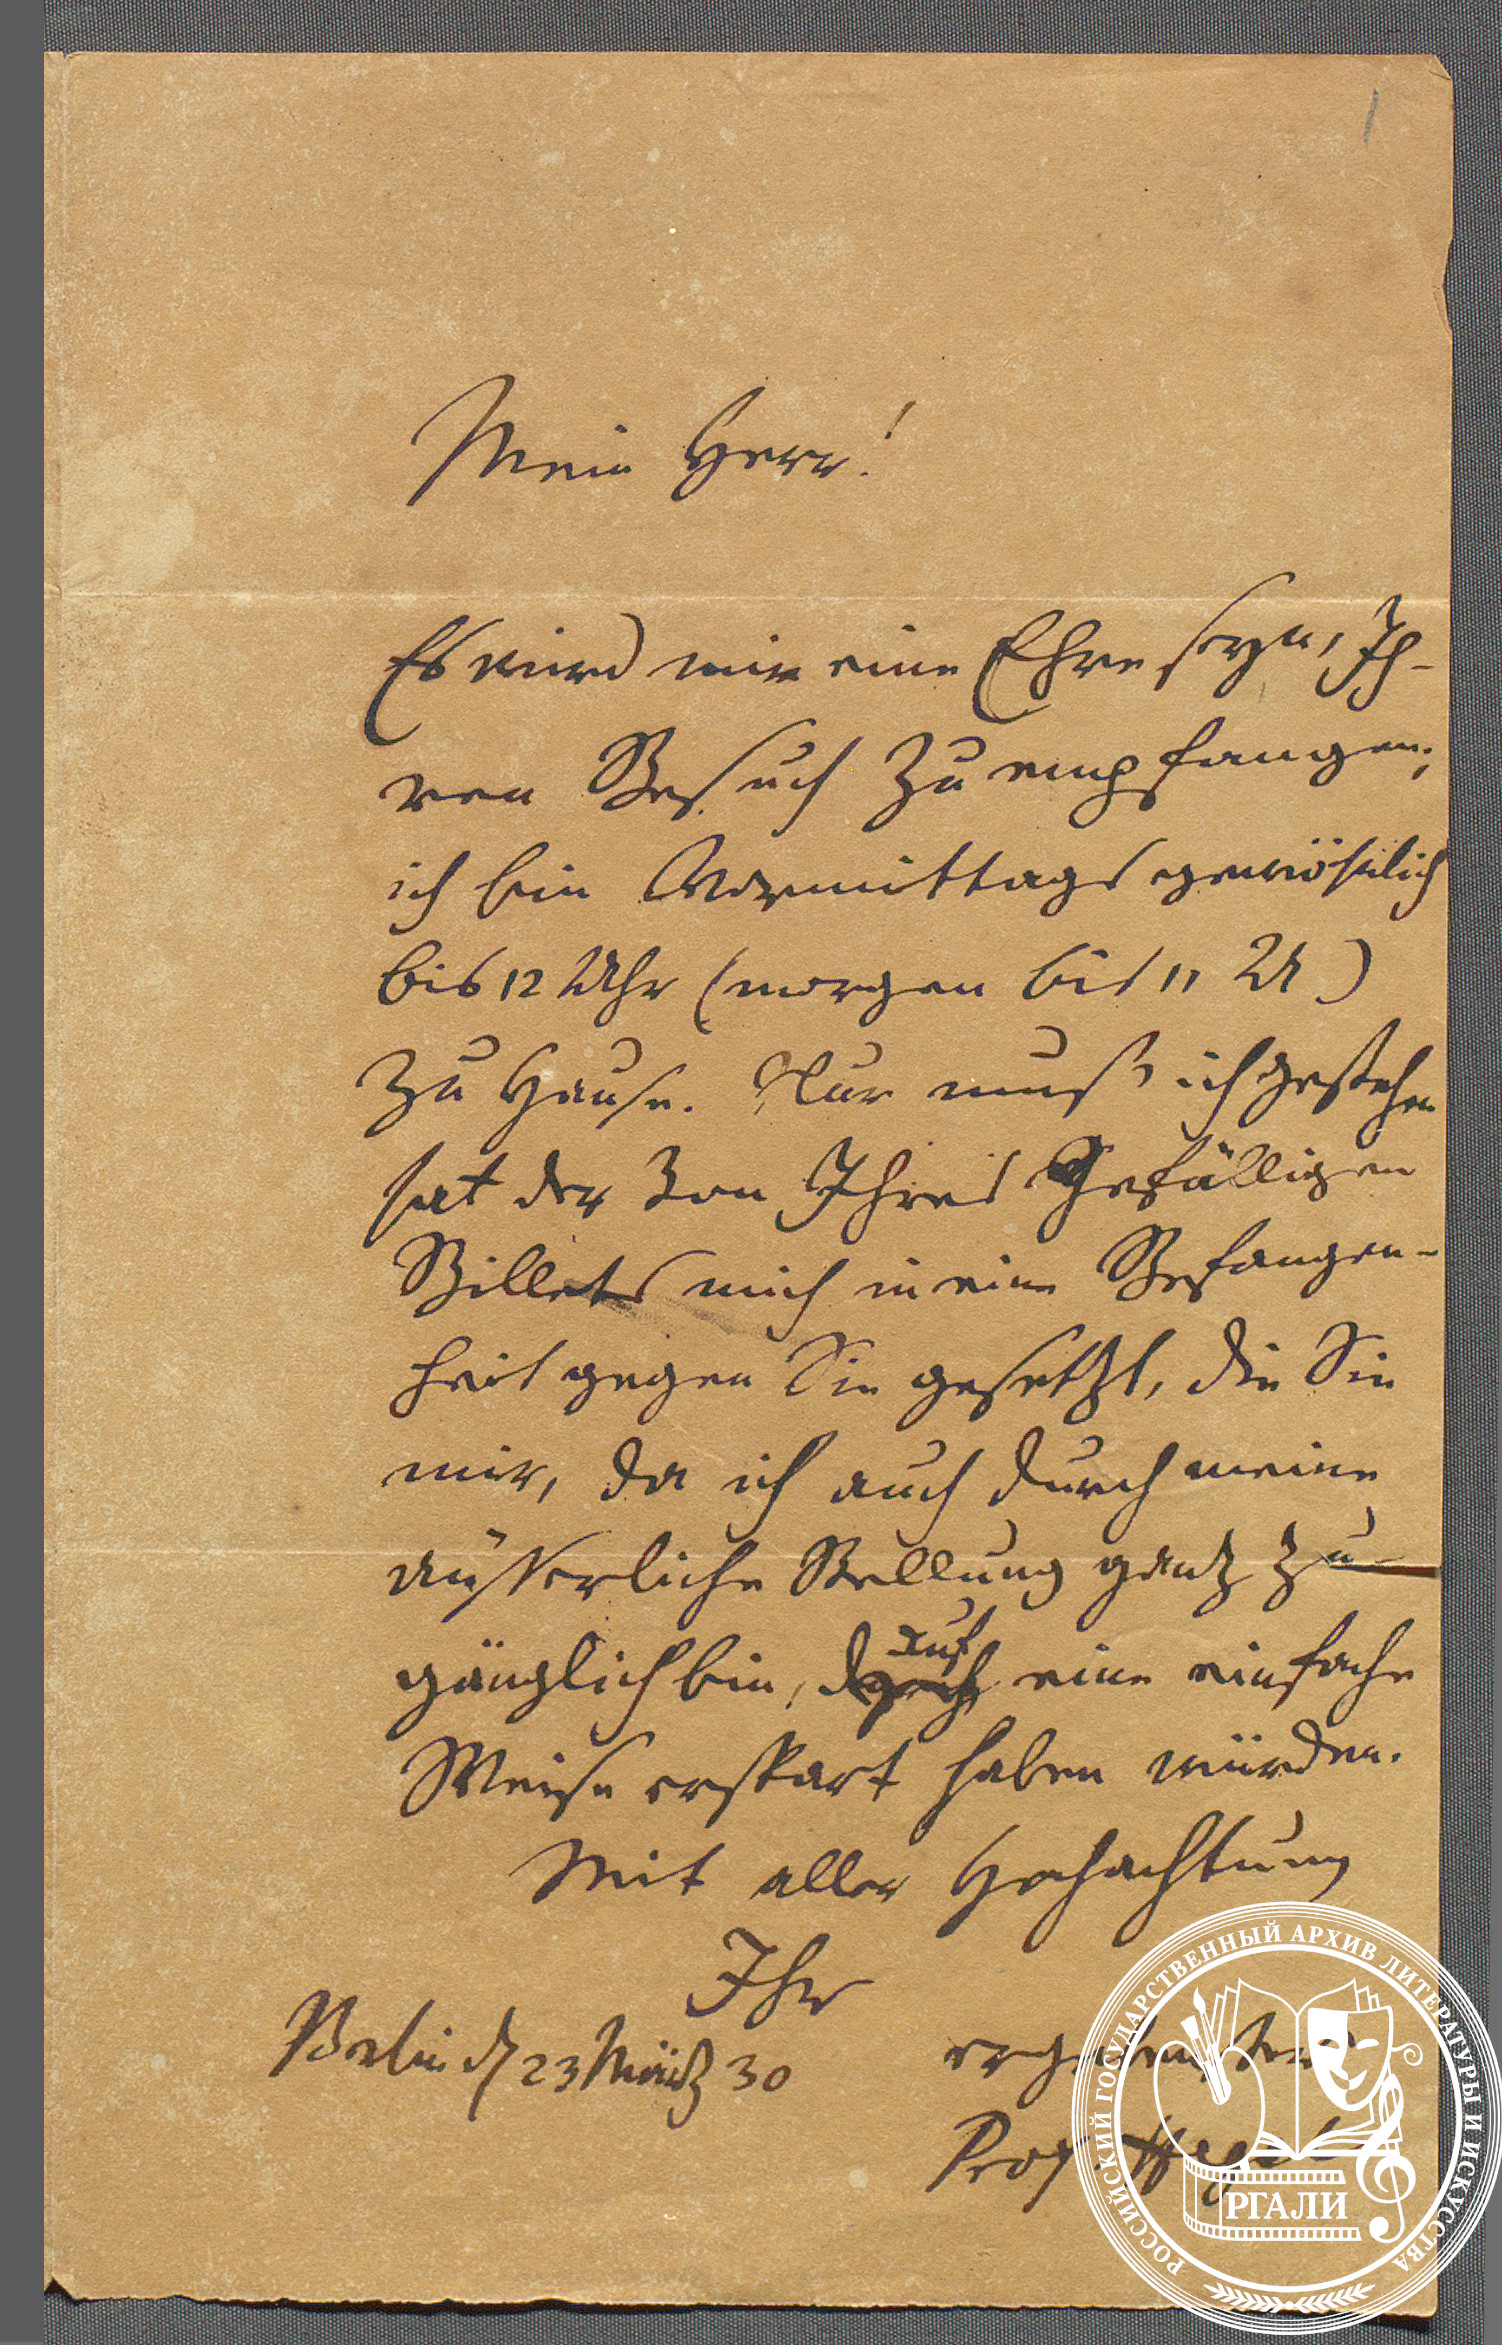 1
Mein Herr!
Es wird mir eine Ehre seyn, Ih-
ren Besuch zu empfangen;
ich bin Vormittags gewöhnlich
bis 12 Uhr (morgen bis 11 U)
zu Hause. Nur muß ich gestehen
hat der Ton Ihres Gefälligen
Billets mich in eine Befangen-
heit gegen Sie gesetzt, die Sie
mir, da ich auch durch meine
äußerliche Stellung ganz zu-
gänglich bin, auf eine einfache
Weise erspart haben würden.
Mit aller Hochachtung
Ihr
Berlin d 23 März 30
ergebenster
Prof. Hegel
РОССИЙСКИЙ ГОСУДАРСТВЕННЫЙ АРХИВ ЛИТЕРАТУРЫ И ИСКУССТВА
РГАЛИ